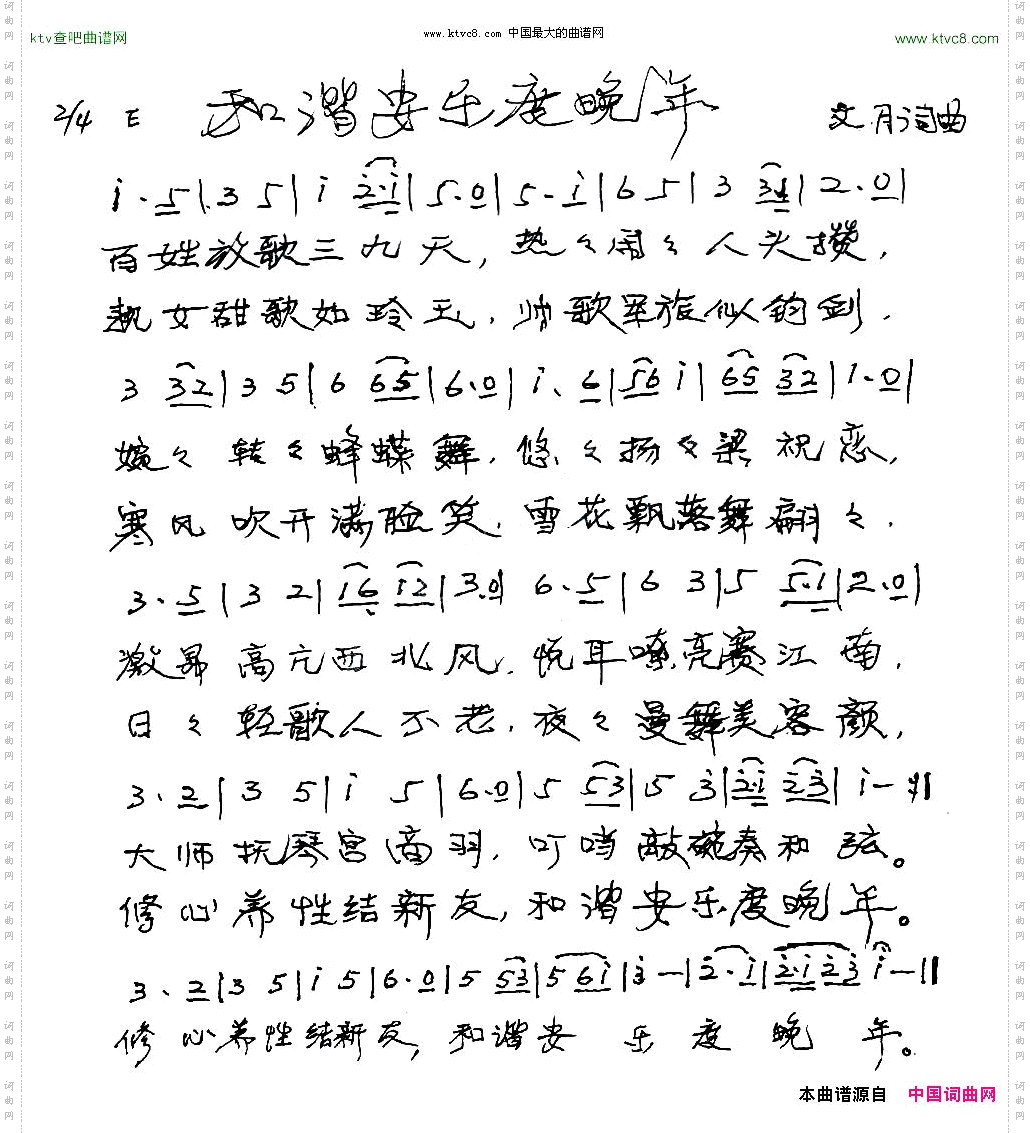 www.ktvc8.com 中国最大的曲谱网
ktv查吧曲谱网 www.ktvc8.com
2/4 E 和谐安乐度晚年 文月词曲
i·5|3 5|i 2·i|5·0|5·i|6 5|3 31|2·0|
百姓放歌三九天，热々闹々人头攒，
女甜歌如玲玉，帅歌军旅似钧剑，
3 32|3 5|6 65|6·0|i·6|56 i|65 32|1·0|
婉々转々蜂蝶舞，悠々扬々梁祝恋，
寒风吹开满脸笑，雪花飘落舞翩々，
3·5|3 2|16 12|3·0|6·5|6 3|5 5·1|2·0|
激昂高亢西北风，悦耳嘹亮赛江南，
日々轻歌人不老，夜々曼舞美容颜，
3·2|3 5|i 5|6·0|5 53|5 3|2·i 23|i-:||
大师抚琴宫商羽，叮当敲碗奏和弦。
修心养性结新友，和谐安乐度晚年。
3·2|3 5|i 5|6·0|5 53|5 6i|3-|2·i|2·i 23 i-||
修心养性结新友，和谐安乐度晚年。
本曲谱源自 中国词曲网